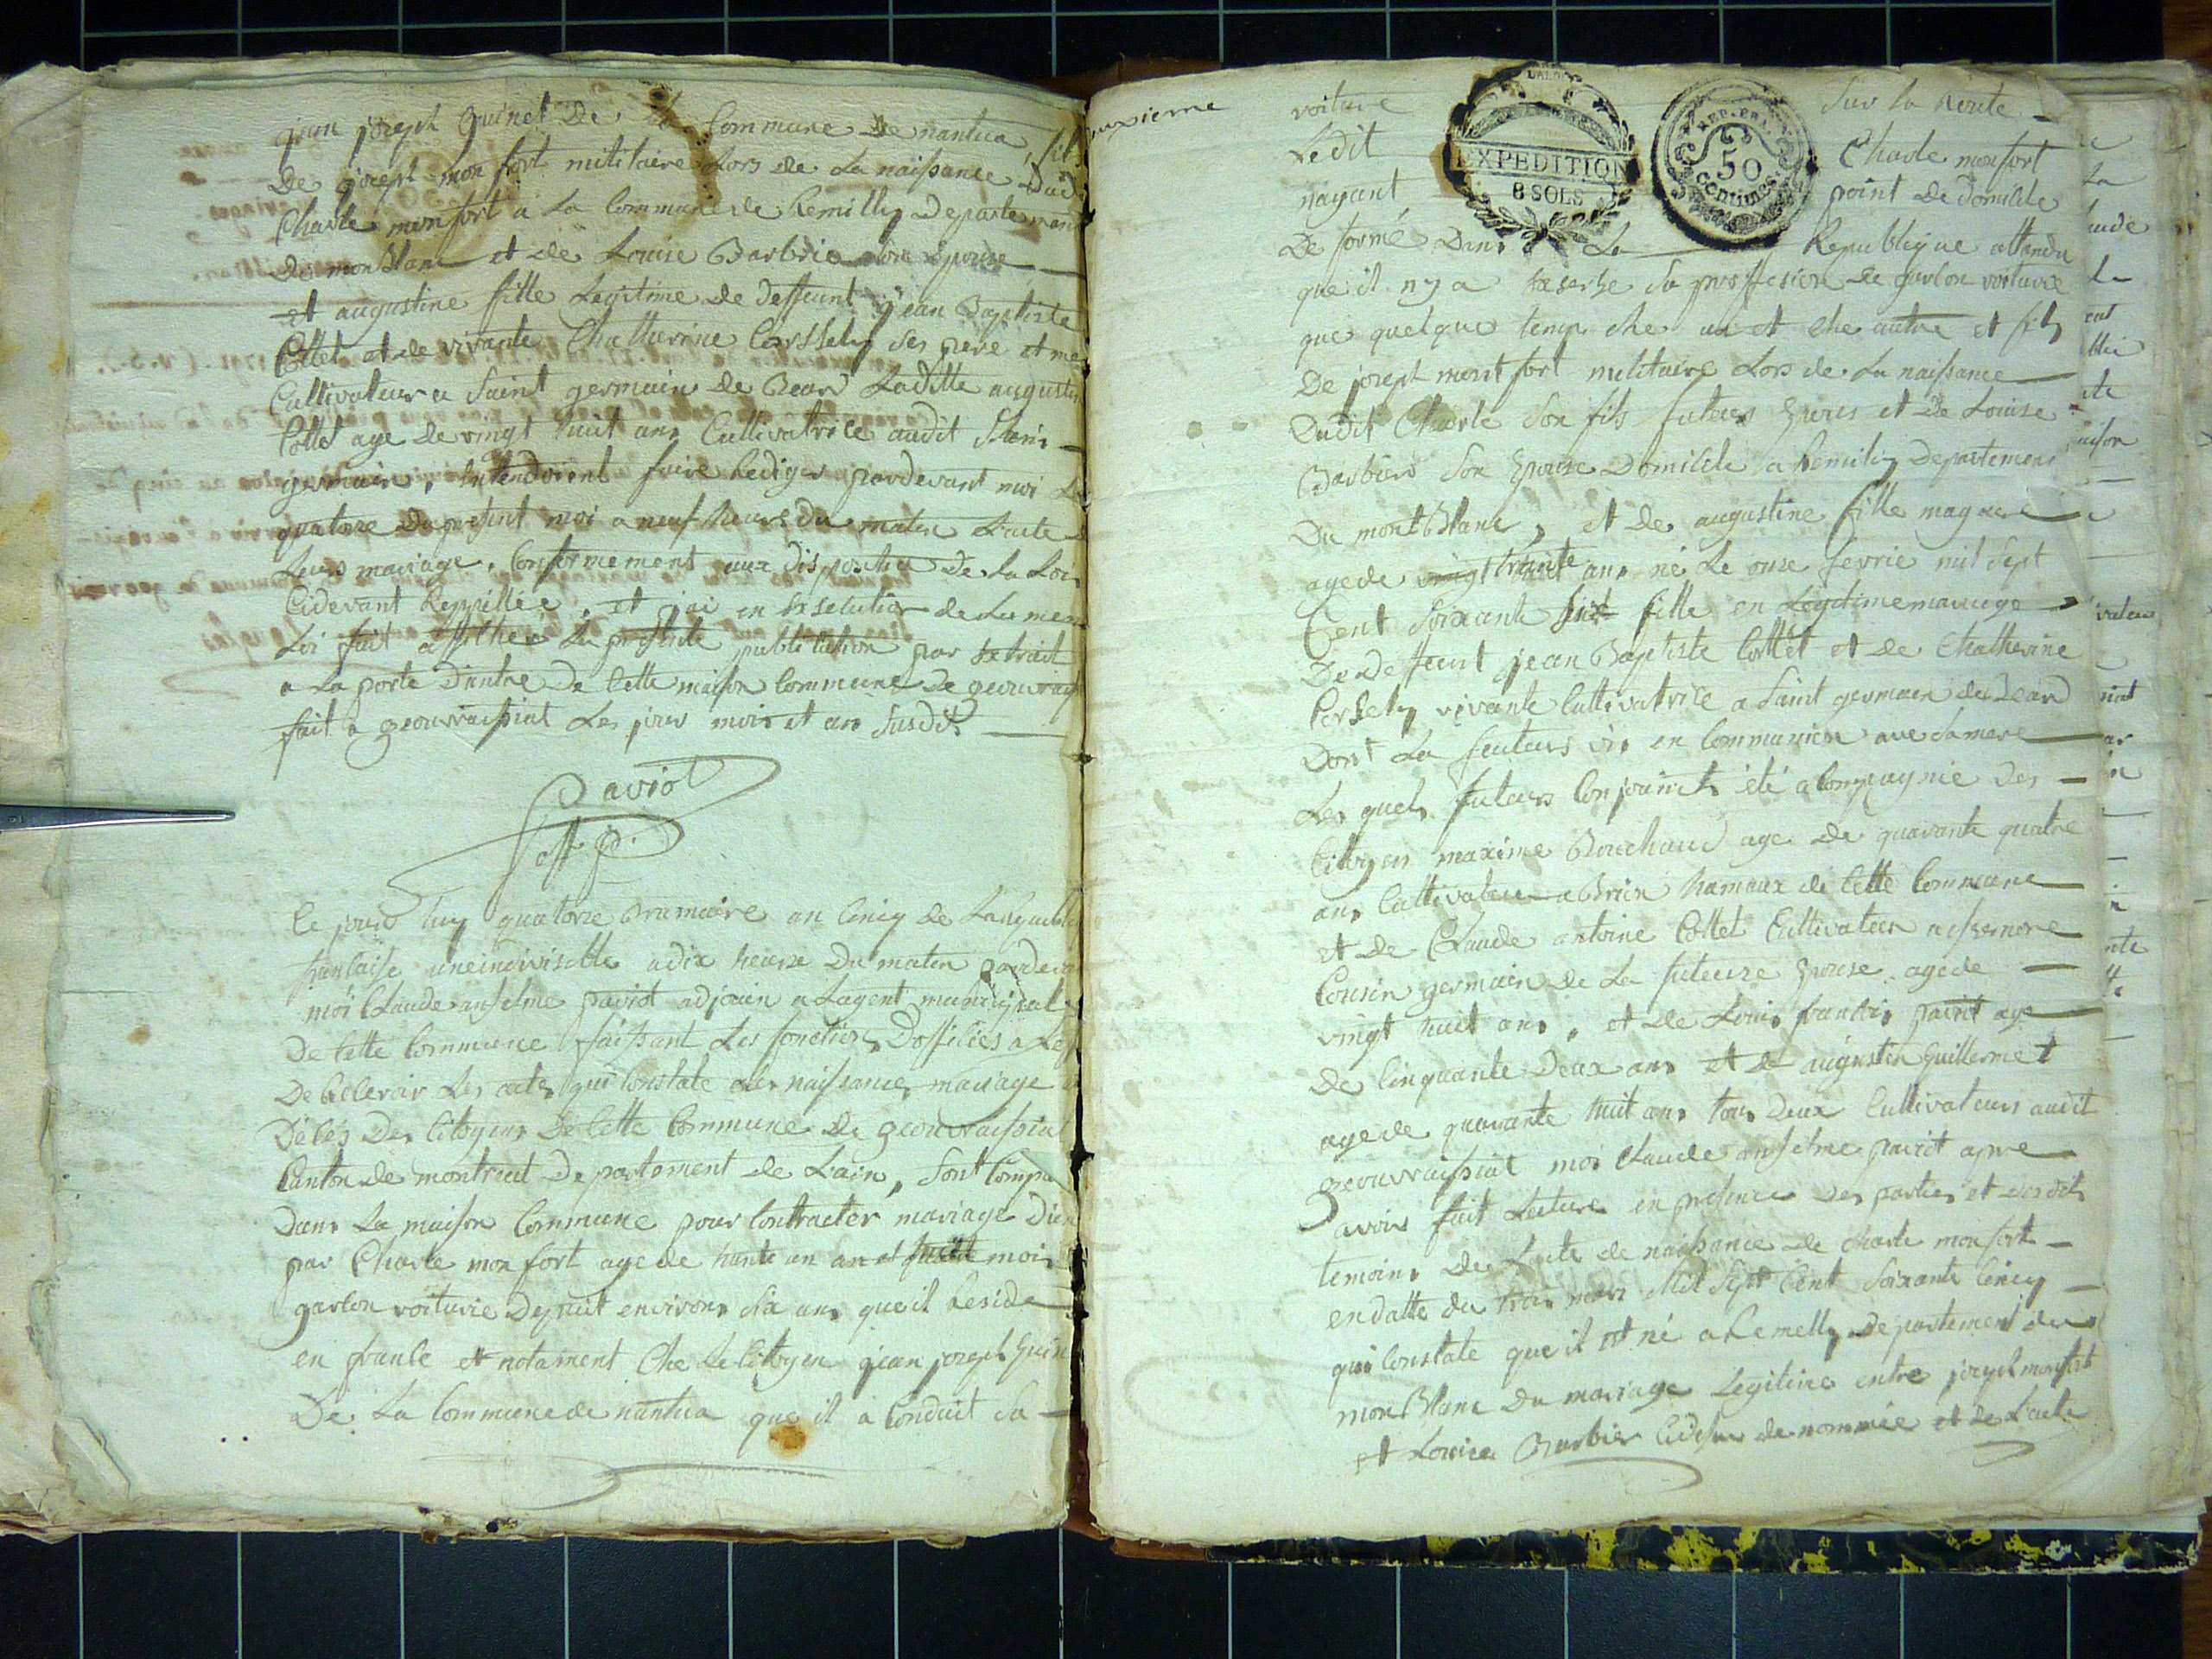 jean joseph Guinet De la Commune de nantua, fils
De joseph mon fort militaire Lors de La naissance Dud
Charle monfort a La Commune de Remilly Departeman
Du monblanc et de Louise Barbrie son Epouse
et augustine fille Legitime de deffeunt jean Baptiste
Collet et de vivante Chatherine Corssely ses pere et me
Cultivateur a Saint germain de Beard Laditte augustine
Collet age de vingt huit ans Cultivatrice audit St
germain, Intendorent faire Rediger pardevant moi Le
quatorze du present moi a neuf heurs du matin L'acte d
Leurs mariage, Conformement aux dispositio De la Loi
Cidevant Rappellée, et j'ai en Exselution de La mem
Loi fait affilher La presente publication par Extrait
a La porte d'antre De Cette maison Commune de geouvraiss
fait a geouvraissiat Les jour mois et an Susdit
Paviot
off p.
Ce jourd huy quatorze Brumaire an Cincq de La Republi
franCaise une indivisible a dix heure Du matin pardeva
moi Claude anselme paviot adjoin a Lagent municipal
De Cette Commune faissant Les fonctions D'offiliés a Le
De Recevoir Les actes qui Constate Les naissances mariage
Décés Des Citoyens De Cette Commune De geouvraissiat
Canton de montreal Departement de L'ain, Sont Compa
Dans La maison Commune pour Contracter mariage D'un
par Charle mon fort age de trante un an et huit moi
garlon voiturie Depuit environs Six ans que il Reside
en franCe et notament Che Le Citoyen jean joseph Guin
De La Commune de nantua que il a Conduit Sa
uxieme
voiture Sur La Route
Ledit Charle monfort
nayant point De Domicile
De formé Dans La Republique attendu
que il n'y a Exserse Sa proffesion de garlon voiturie
que quelque temps che un et Che autre et fils
De joseph montfort militaire Lors de La naissance
Dudit Charle Son fils futeur Epous et de Louise
Barbier Son Epouse Domicile a Remilly Departement
Du mont Blanc, et de augustine fille mageure
agé de vingt trante ans né Le onse fevrie mil Sept
Cent Soixante Six fille en Legitime mariage
De deffeunt jean Baptiste Collet et de Chatherine
Corsely vivante Cultivatrice a Saint germain de Beard
Dont La feuteurs vis en Communion ave Sa mere
Les quels futeurs Conjoints été aCompagnie Des
Citoyens maxime Bouchard age de quarante quatre
ans Cultivateur a Brien hamaux de Cette Commune
et de Claude antoine Collet Cultivateur a issernore
Cousin germain de La futeure Epouse agé de
vingt huit ans, et de Louis franCois paviot age
de Cinquante Deux ans et de augustin Guillermet
agé de quarante huit ans tous Deux Cultivateurs audit
geouvraissiat moi Claude anselme paviot apre
avoir fait Lecture en presence des parties et desdits
temoins De L'acte de naissance de Charle mon fort
en datte du trois mars Mil Sept Cent Soixante Cincq
qui Constate que il est né a Remelly Departement du
mon Blanc Du mariage Legitime entre joseph monfort
et Louise Barbier Cidesus de nommée et de L'acte
50
centimes
REP. FRA.
EXPEDITION
8 SOLS